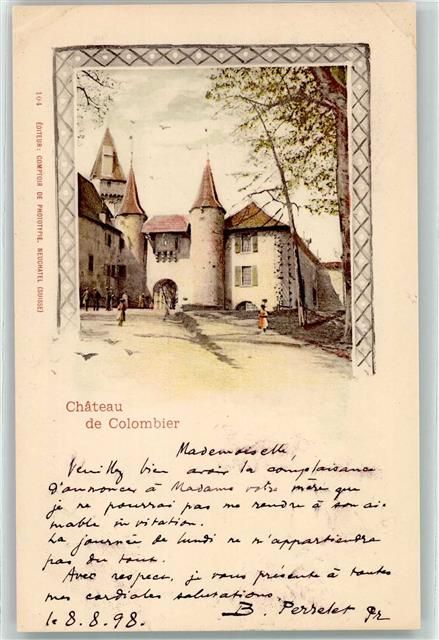 104 ÉDITEUR: COMPTOIR DE PHOTOTYPIE, NEUCHATEL (SUISSE)
Château
de Colombier
Mademoiselle,
Veuillez bien avoir la complaisance
d'annoncer à Madame votre mère que
je ne pourrai pas me rendre à son ai-
mable invitation.
La journée de lundi ne m'appartiendra
pas du tout.
Avec respect, je vous présente à toutes
mes cordiales salutations.
le 8.8.98. B. Perrelet